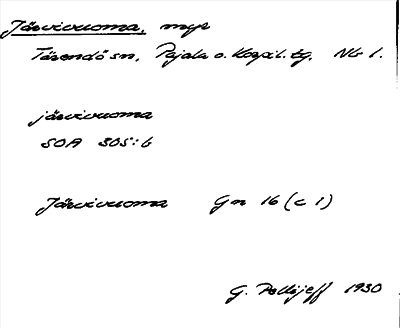 Järvivuoma, myr
Tärendö sn, Pajala o. Korpil. tg, Nb l.
järvivuoma
SOA 305:6
Järvivuoma Gn 16 (c 1)
G. Pellijeff 1930